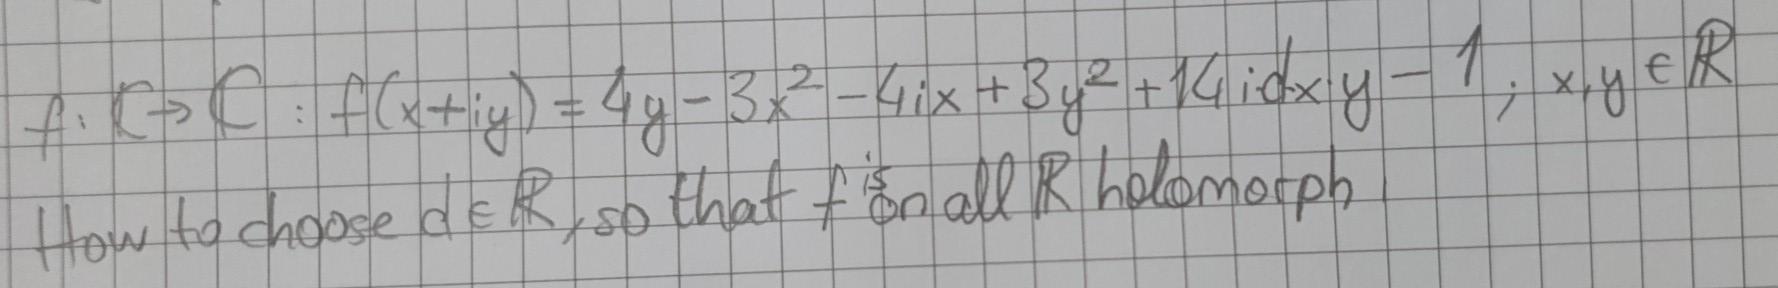 f: ℂ→ℂ : f(x+iy) = 4y - 3x² - 4ix + 3y² + 14idxy - 1 ; x,y ∈ ℝ
How to choose d ∈ ℝ, so that f is on all ℝ holomorph